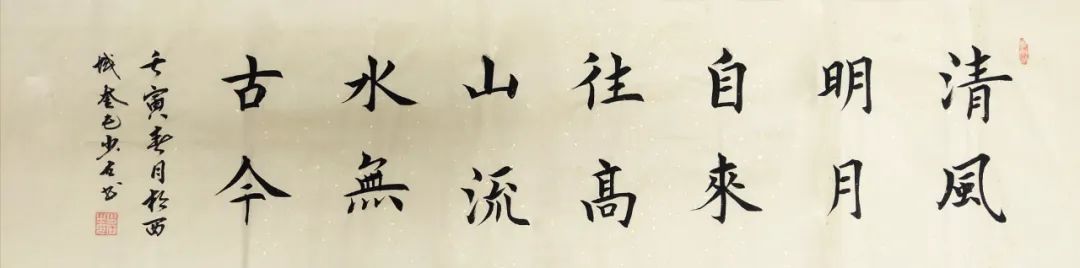 清風
明月
自來
往高
山流
水無
古今
壬寅春月於西
城
少石書